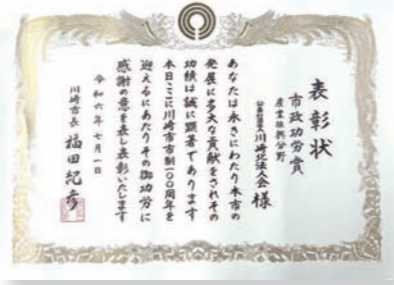 表彰状
市政功労賞
産業振興分野
公益社団法人川崎北法人会 様
あなたは永きにわたり本市の
発展に多大な貢献をされその
功績は誠に顕著であります
本日ここに川崎市市制一〇〇周年を
迎えるにあたりその御功労に
感謝の意を表し表彰いたします
令和六年七月一日
川崎市長 福田紀彦